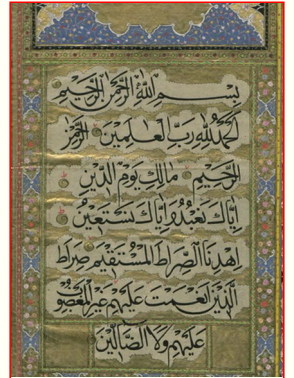 بِسْمِ اللّٰهِ الرَّحْمٰنِ الرَّحِيْمِ
اَلْحَمْدُ لِلّٰهِ رَبِّ الْعٰلَمِيْنَ الرَّحْمٰنِ
الرَّحِيْمِ مَالِكِ يَوْمِ الدِّيْنِ
اِيَّاكَ نَعْبُدُ وَاِيَّاكَ نَسْتَعِيْنُ
اِهْدِنَا الصِّرَاطَ الْمُسْتَقِيْمَ صِرَاطَ
الَّذِيْنَ اَنْعَمْتَ عَلَيْهِمْ غَيْرِ الْمَغْضُوْبِ
عَلَيْهِمْ وَلَا الضَّالِّيْنَ